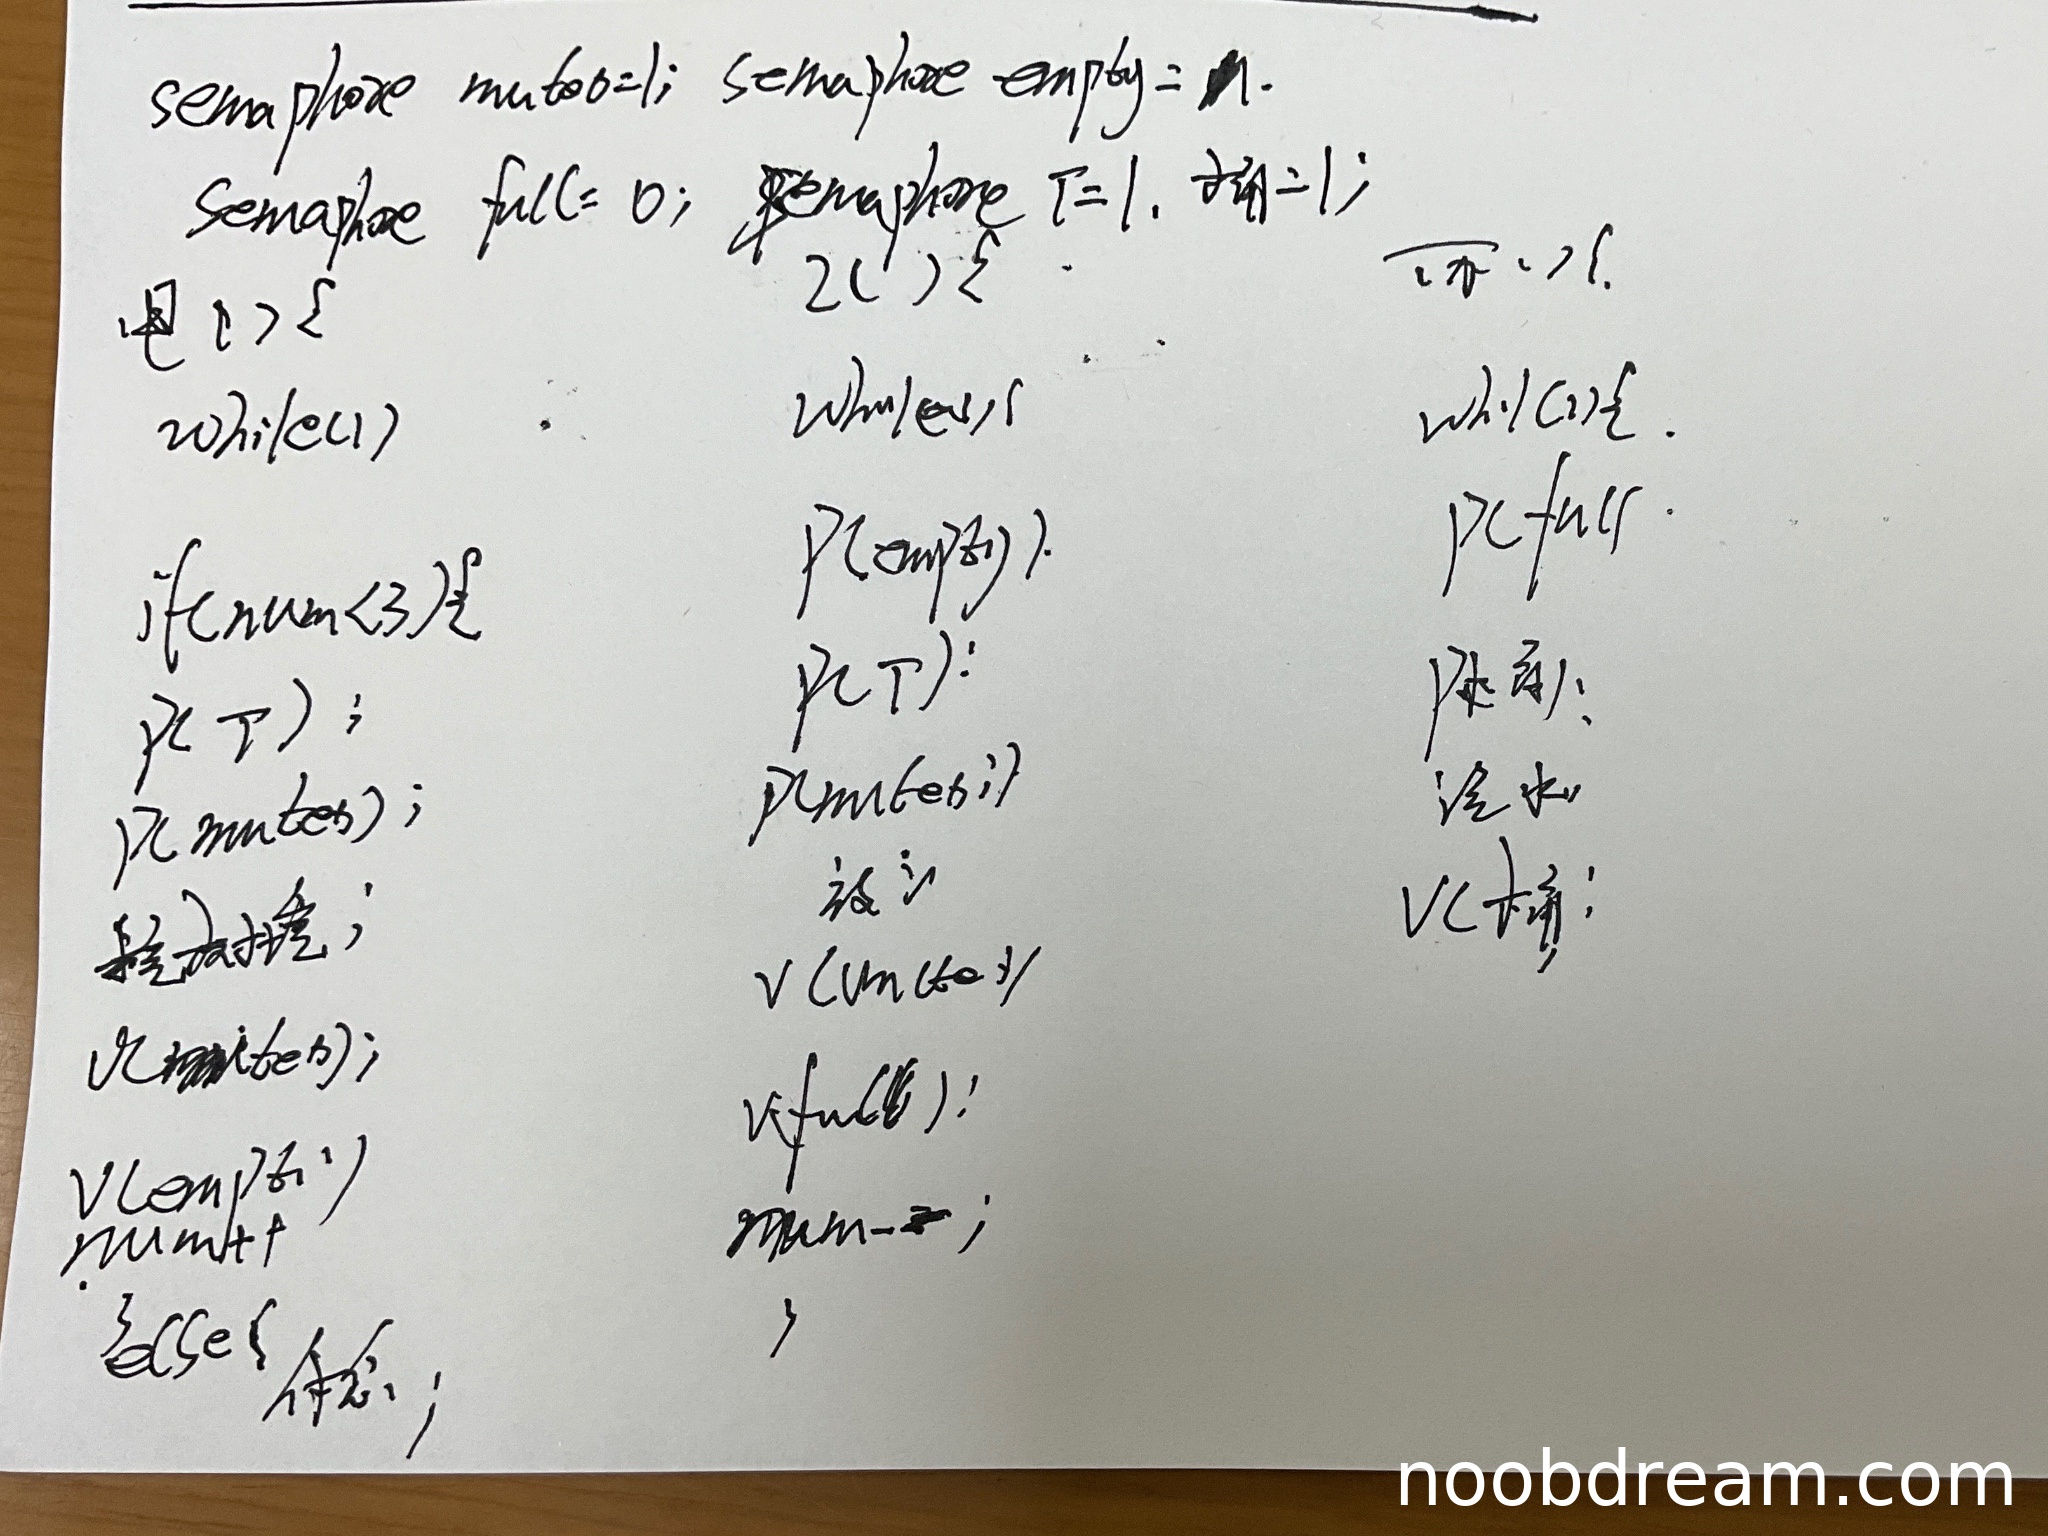 semaphore mutex=1; semaphore empty=n.
semaphore full=0; semaphore T=1. 桶=1;
甲(){
while(1)
if(num<3){
P(T);
P(mutex);
V(mutex);
V(empty)
num++
}else{
;
2(){
while(1){
P(empty).
P(T);
P(mutex);
V(mutex)
V(full);
num--;
}
(){
while(1){
P(full
P(
浇水
V(桶;
noobdream.com